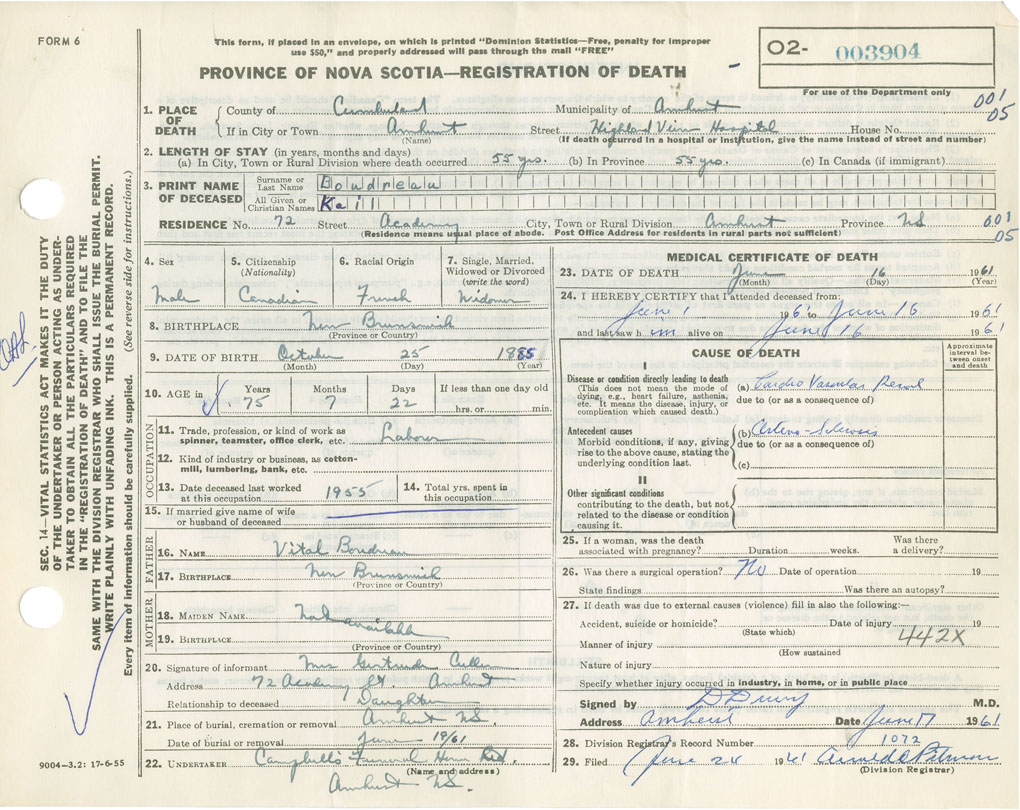 FORM 6
This form, if placed in an envelope, on which is printed "Dominion Statistics—Free, penalty for improper
use $50," and properly addressed will pass through the mail "FREE"
PROVINCE OF NOVA SCOTIA—REGISTRATION OF DEATH
O2- 003904
For use of the Department only
001
05
1. PLACE OF DEATH
County of Cumberland Municipality of Amherst
If in City or Town Amherst Street Highland View Hospital House No.
(Name) (If death occurred in a hospital or institution, give the name instead of street and number)
2. LENGTH OF STAY (in years, months and days)
(a) In City, Town or Rural Division where death occurred 55 yrs. (b) In Province 55 yrs. (c) In Canada (if immigrant)
3. PRINT NAME OF DECEASED
Surname or Last Name Boudreau
All Given or Christian Names Kail
RESIDENCE No. 72 Street Academy City, Town or Rural Division Amherst Province NS 001
05
(Residence means usual place of abode. Post Office Address for residents in rural parts not sufficient)
4. Sex Male
5. Citizenship (Nationality) Canadian
6. Racial Origin French
7. Single, Married, Widowed or Divorced (write the word) Widower
8. BIRTHPLACE New Brunswick
(Province or Country)
9. DATE OF BIRTH October 25 1885
(Month) (Day) (Year)
10. AGE in Years 75 Months 7 Days 22 If less than one day old hrs. or min.
OCCUPATION
11. Trade, profession, or kind of work as spinner, teamster, office clerk, etc. Labour
12. Kind of industry or business, as cotton-mill, lumbering, bank, etc.
13. Date deceased last worked at this occupation 1955
14. Total yrs. spent in this occupation
15. If married give name of wife or husband of deceased
FATHER
16. NAME Vital Boudreau
17. BIRTHPLACE New Brunswick
(Province or Country)
MOTHER
18. MAIDEN NAME Not available
19. BIRTHPLACE
(Province or Country)
20. Signature of informant Mrs Gertrude Cullen
Address 72 Academy St. Amherst
Relationship to deceased Daughter
21. Place of burial, cremation or removal Amherst NS.
Date of burial or removal June 19/61
22. UNDERTAKER Campbell's Funeral Home Ltd.
(Name and address)
Amherst NS.
MEDICAL CERTIFICATE OF DEATH
23. DATE OF DEATH June 16 1961
(Month) (Day) (Year)
24. I HEREBY CERTIFY that I attended deceased from:
June 1 196 to June 16 1961
and last saw h im alive on June 16 1961
CAUSE OF DEATH
Approximate interval between onset and death
I
Disease or condition directly leading to death
(This does not mean the mode of dying, e.g., heart failure, asthenia, etc. It means the disease, injury, or complication which caused death.)
(a) Cardio Vascular Renal
due to (or as a consequence of)
Antecedent causes
Morbid conditions, if any, giving rise to the above cause, stating the underlying condition last.
(b) Arterio-Sclerosis
due to (or as a consequence of)
(c)
II
Other significant conditions
contributing to the death, but not related to the disease or condition causing it.
25. If a woman, was the death associated with pregnancy? Duration weeks. Was there a delivery?
26. Was there a surgical operation? No Date of operation 19
State findings Was there an autopsy?
27. If death was due to external causes (violence) fill in also the following:—
Accident, suicide or homicide? Date of injury 19
(State which) 442X
Manner of injury
(How sustained
Nature of injury
Specify whether injury occurred in industry, in home, or in public place
Signed by D Drury M.D.
Address Amherst Date June 17 1961
28. Division Registrar's Record Number 1072
29. Filed June 24 1961
(Division Registrar)
SEC. 14—VITAL STATISTICS ACT MAKES IT THE DUTY
OF THE UNDERTAKER OR PERSON ACTING AS UNDER-
TAKER TO OBTAIN ALL THE PARTICULARS REQUIRED
IN THE "REGISTRATION OF DEATH" AND TO FILE THE
SAME WITH THE DIVISION REGISTRAR WHO SHALL ISSUE THE BURIAL PERMIT.
WRITE PLAINLY WITH UNFADING INK. THIS IS A PERMANENT RECORD.
Every item of information should be carefully supplied. (See reverse side for instructions.)
9004—3.2: 17-6-55